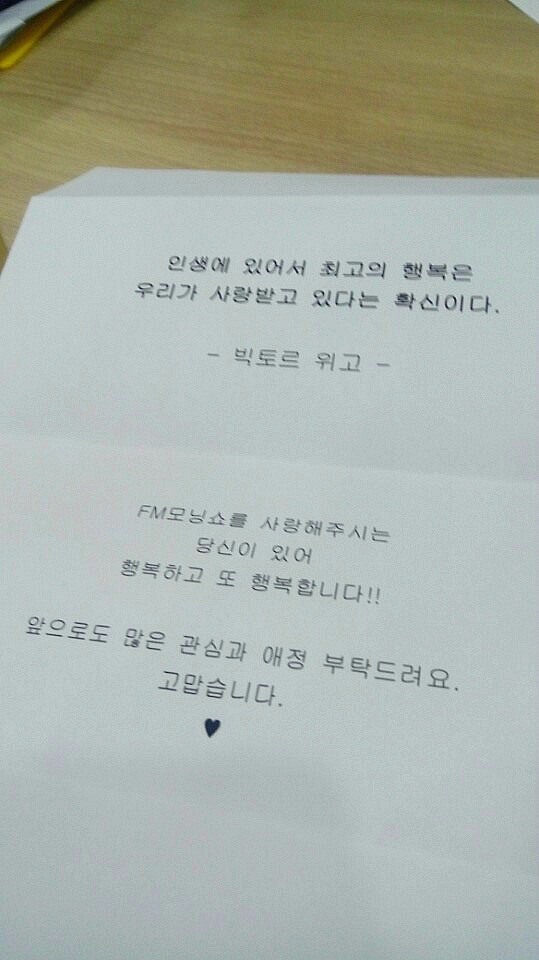 인생에 있어서 최고의 행복은
우리가 사랑받고 있다는 확신이다.
- 빅토르 위고 -
FM모닝쇼를 사랑해주시는
당신이 있어
행복하고 또 행복합니다!!
앞으로도 많은 관심과 애정 부탁드려요.
고맙습니다.
♥